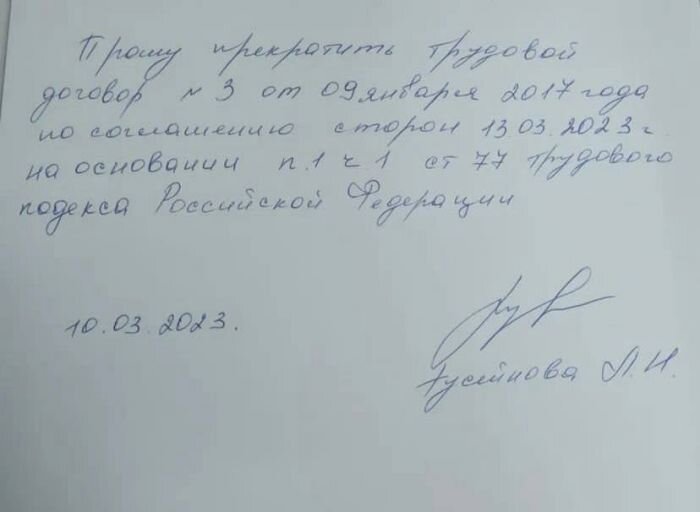 Прошу прекратить трудовой
договор № 3 от 09 января 2017 года
по соглашению сторон 13 03. 2023 г.
на основании п. 1 ч 1 ст 77 трудового
кодекса Российской Федерации
10.03.2023.
Л.И.